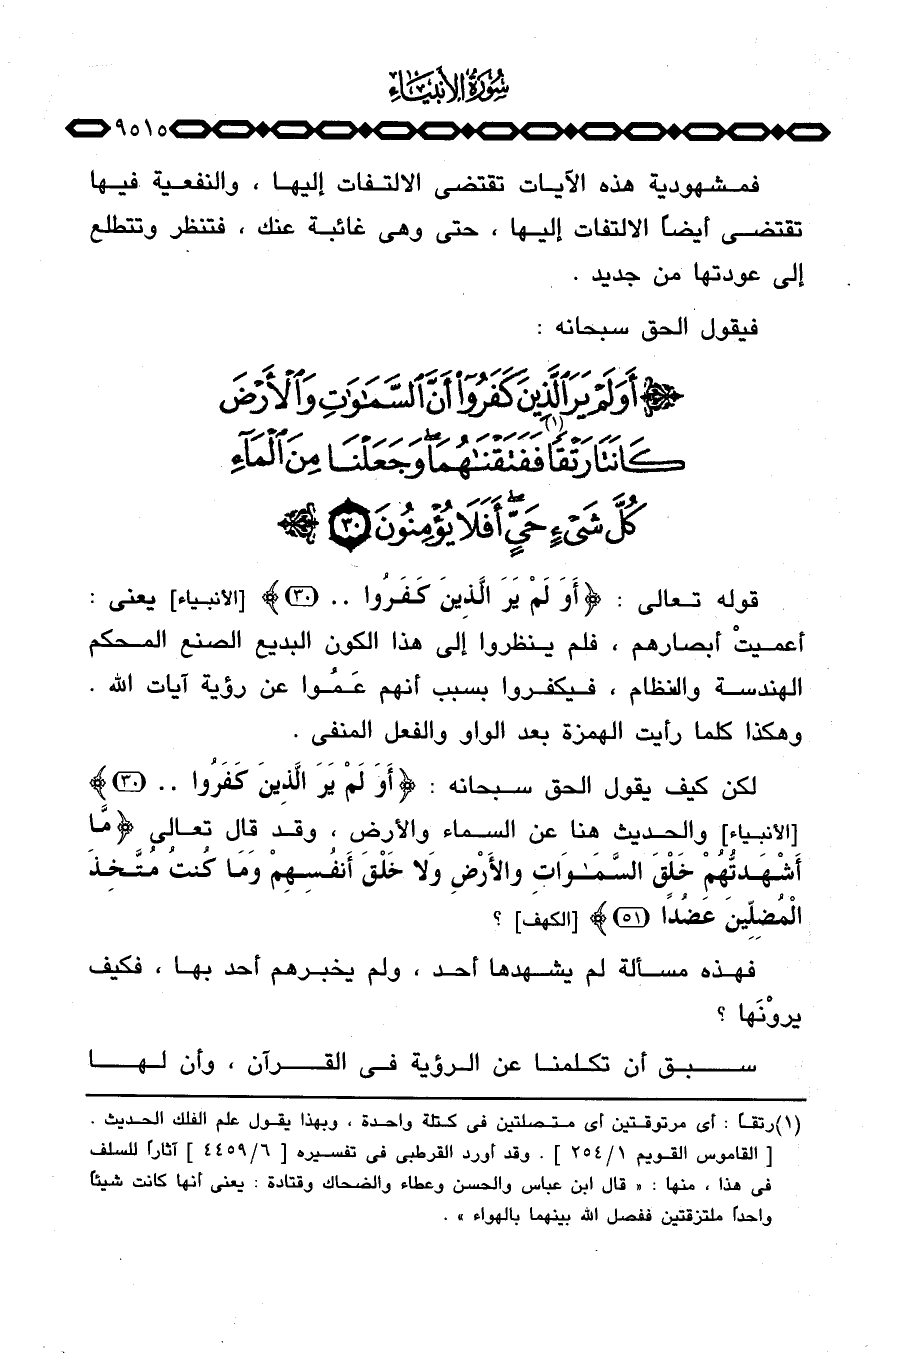 سُورَةُ الأَنبِيَاءِ
٩٥١٥
فمشهودية هذه الآيات تقتضى الالتفات إليها ، والنفعية فيها
تقتضى أيضاً الالتفات إليها ، حتى وهى غائبة عنك ، فتنظر وتتطلع
إلى عودتها من جديد .
فيقول الحق سبحانه :
﴿ أَوَلَمْ يَرَ الَّذِينَ كَفَرُوٓا۟ أَنَّ ٱلسَّمَٰوَٰتِ وَٱلْأَرْضَ
كَانَتَا رَتْقًا(١) فَفَتَقْنَٰهُمَا ۖ وَجَعَلْنَا مِنَ ٱلْمَآءِ
كُلَّ شَىْءٍ حَىٍّ ۖ أَفَلَا يُؤْمِنُونَ ٣٠ ﴾
قوله تعالى : ﴿ أَوَ لَمْ يَرَ الَّذِينَ كَفَرُوا .. (٣٠) ﴾ [الأنبياء] يعنى :
أعميتْ أبصارهم ، فلم ينظروا إلى هذا الكون البديع الصنع المحكم
الهندسة والنظام ، فيكفروا بسبب أنهم عَمُوا عن رؤية آيات الله .
وهكذا كلما رأيت الهمزة بعد الواو والفعل المنفى .
لكن كيف يقول الحق سبحانه : ﴿ أَوَ لَمْ يَرَ الَّذِينَ كَفَرُوا .. (٣٠) ﴾
[الأنبياء] والحديث هنا عن السماء والأرض ، وقد قال تعالى ﴿ مَّا
أَشْهَدتُّهُمْ خَلْقَ السَّمَٰوَاتِ وَالأَرْضِ وَلا خَلْقَ أَنفُسِهِمْ وَمَا كُنتُ مُتَّخِذَ
الْمُضِلِّينَ عَضُدًا (٥١) ﴾ [الكهف] ؟
فهذه مسألة لم يشهدها أحد ، ولم يخبرهم أحد بها ، فكيف
يروْنَها ؟
سبق أن تكلمنا عن الرؤية فى القرآن ، وأن لها
(١) رتقاً : أى مرتوقتين أى متصلتين فى كتلة واحدة ، وبهذا يقول علم الفلك الحديث .
[ القاموس القويم ٢٥٤/١ ] . وقد أورد القرطبى فى تفسيره [ ٤٤٥٩/٦ ] آثاراً للسلف
فى هذا ، منها : « قال ابن عباس والحسن وعطاء والضحاك وقتادة : يعنى أنها كانت شيئاً
واحداً ملتزقتين ففصل الله بينهما بالهواء » .